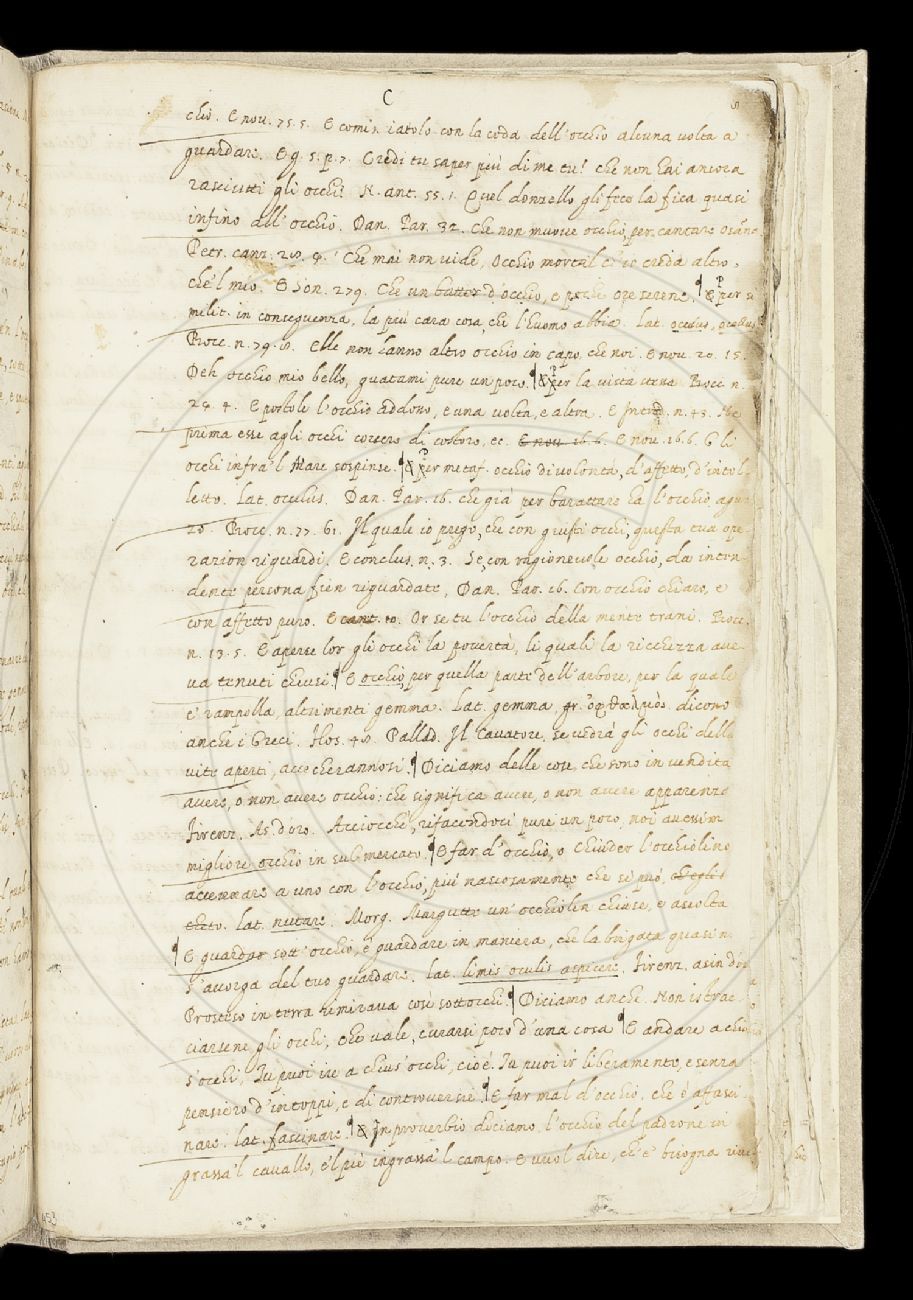 C
chio. E nov. 75. 5. E cominciatolo con la coda dell'occhio alcuna volta a
guardare. E g. 5. p. 7. Credi tu saper più di me tu? che non hai ancora
rasciutti gli occhi? N. ant. 55. 1. Quel donzello gli fece la fica quasi
infino all'occhio. Dan. Par. 32. Che non muove occhio, per cantare osanna
Petr. canz. Che mai non vide, occhio mortal ch'io creda altro,
che'l mio. E Son. 279. Che un batter d'occhio, e poche ore serene. ¶ E per si
milit. in conseguenza, la più cara cosa, che l'huomo abbia. Lat. oculus, ocellus
Bocc. n. 79. Elle non hanno altro occhio in capo, che noi. E nov. 20. 15.
Deh occhio mio bello, guatami pure un poco. ¶ E per la vista Bocc. n.
24. 4. E postole l'occhio addosso, e una volta, e altra. E Introd. n. 43. Ne
prima esse agli occhi corsero di costoro, ec. E nov. 16. 6. E nov. 16. 6. Gli
occhi infra'l Mare sospinse. ¶ E per metaf. occhio di volontà, d'affetto, d'intel-
letto. Lat. occulus. Dan. Par. 16. che già per barattare ha l'occhio aguz
zo. Bocc. n. 77. 61. Il quale io prego, che con giusti occhi, questa tua ope
razion riguardi. E conclus. n. 3. Se con ragionevole occhio, da inten-
dente persona fien riguardate, Dan. Par. 16. Con occhio chiaro, e
con affetto puro. E cant. 10. Or se tu l'occhio della mente trani. Bocc.
n. 13. 5. E aperse lor gli occhi la povertà, li quali la ricchezza ave-
va tenuti chiusi. ¶ E occhio, per quella parte dell'arbore, per la quale
e' rampolla, altrimenti gemma. Lat. gemma, gr. ὀφθαλμὸς. dicono
anche i Greci. Pallad. Il Cavatore, se vedrà gli occhi della
vite aperti, accecherannosi. ¶ Diciamo delle cose, che sono in vendita
avere, o non avere occhio: che significa avere, o non avere apparenza
Firenz. As. d'oro. Acciocchè, rifacendoci pure un poco, noi avessim
migliore occhio in sul mercato. ¶ E far d'occhio, o chiuder l'occhiolino
accennare a uno con l'occhio, più nascosamente che si può,
Lat. nutare. Morg. Margutte un' occhiolin chiuse, e ascolta
¶ E guardar sott'occhio, è guardare in maniera, che la brigata quasi n
s'avvegga del tuo guardare. Lat. limis oculis aspicere, Firenz. asin d'or
Prosteso in terra rimirava così sottocchi. ¶ Diciamo anche. Non istrac-
ciarsene gli occhi, che vale, curarsi poco d'una cosa ¶ E andare a chiu
s'occhi, Tu puoi ire a chius'occhi, cioè. Tu puoi ir liberamente, e senza
pensiero d'intoppi, e di controversie. ¶ E far mal d'occhio, che è affasci-
nare. lat. fascinare. ¶ In proverbio diciamo. l'occhio del padrone in
grassa'l cavallo, e'l piè ingrassa'l campo. E vuol dire, ch'e' bisogna